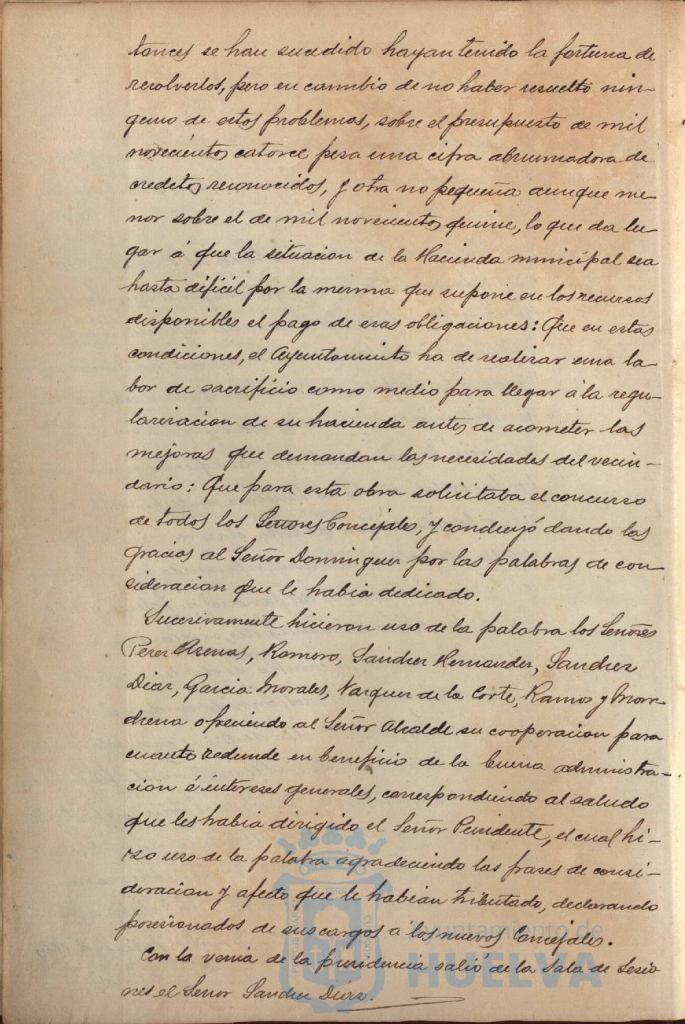 tonces se han sucedido hayan tenido la fortuna de
resolverlos, pero en cambio de no haber resuelto nin-
guno de estos problemas, sobre el presupuesto de mil
novecientos catorce pesa una cifra abrumadora de
creditos reconocidos, y otra no pequeña aunque me
nor sobre el de mil novecientos quince, lo que da lu-
gar á que la situacion de la Hacienda municipal sea
hasta dificil por la merma que supone en los recursos
disponibles el pago de esas obligaciones: Que en estas
condiciones, el Ayuntamiento ha de realizar una la-
bor de sacrificio como medio para llegar á la regu-
larizacion de su hacienda antes de acometer las
mejoras que demandan las necesidades del vecin-
dario: Que para esta obra solicitaba el concurso
de todos los Señores Concejales, y concluyó dando las
gracias al Señor Dominguez por las palabras de con-
sideracion que le habia dedicado.
Sucesivamente hicieron uso de la palabra los Señores
Perez Asenas, Romero, Sanchez Hernandez, Sanchez
Diaz, Garcia Morales, Vazquez de la Corte, Ramos y Mar-
chena ofreciendo al Señor Alcalde su cooperacion para
cuanto redunde en beneficio de la buena administra-
cion é intereses generales, correspondiendo al saludo
que les habia dirigido el Señor Presidente, el cual hi-
zo uso de la palabra agradeciendo las frases de consi-
deracion y afecto que le habian tributado, declarando
posesionados de sus cargos a los nuevos Concejales.
Con la venia de la presidencia salió de la Sala de Sesio
nes el Señor Sanchez Diaz.
Ayuntamiento de
HUELVA